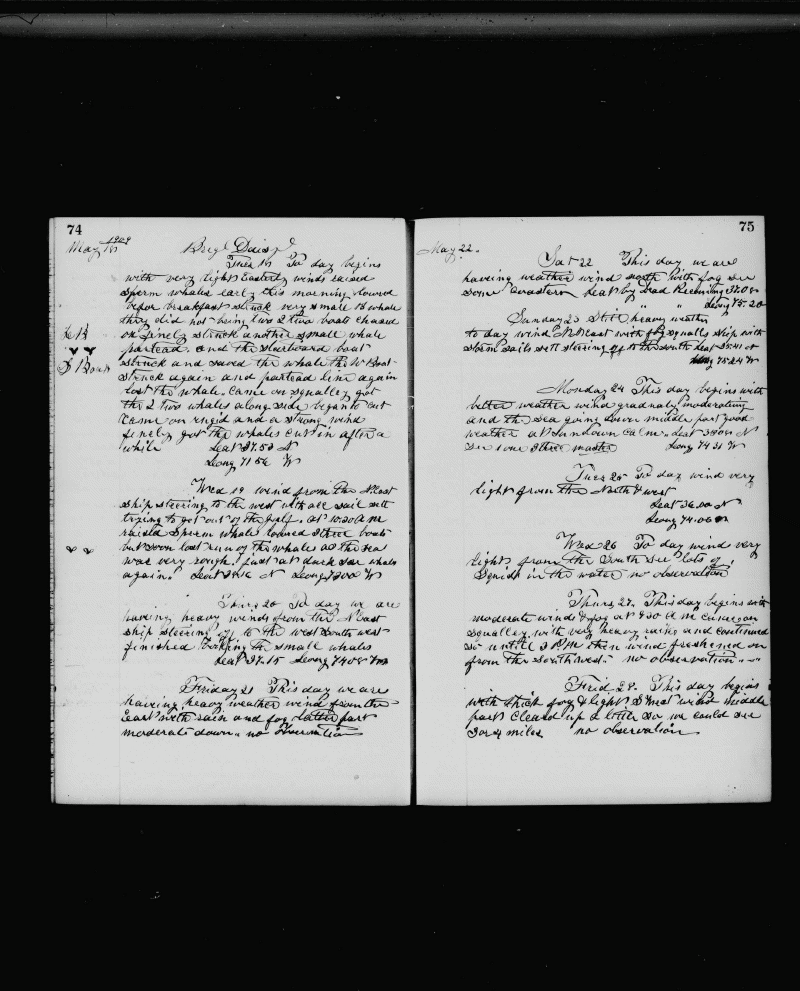 74
May 18 1909 Brig Daisy
Tues 18 To day begins
with very light Easterly winds raised
sperm whales early this morning lowered
before breakfast struck very small 15 whale
they did not bring two 2 two boats chased
on finely struck another small whale
partead. and the starboard boat
L B
S Boat
struck and saved the whale the W Boat
struck again and partead line again
lost the whale. Came on squalley got
the 2 two whales along side began to cut
Came on rugid and a strong wind
finely got the whales cut in after a
while Leat 37.53 N
Leong 71.56 W
Wed 19 wind from the N East
ship steering to the west with all sail sett
trying to get out of the gulf. at 10.30 A m
raised Sperm whale lowered three boats
but soon lost run of the whales as the sea
was very rough. just at dusk saw whale
again. Leat N Leong W
Thurs 20 To day we are
having heavy winds from the N East
ship steering off to the west South west
finished the small whales
Leat 37.15 Leong 74.08 W
Friday 21 This day we are
having heavy weather wind from the
East with rain and fog latter part
moderate down. no observation
75
May 22.
Sat 22 This day we are
having weather wind north with fog see
some Coasters Leat by Dead Reckoning 37.08
" " Leong 75.20
Sunday 23 Still heavy weather
to day wind N N East with fog squalls ship with
storm sails sett steering off to the south Leat 35.41 N
Leong 75.24 W
Monday 24 This day begins with
better weather wind gradualy moderating
and the sea going down middle part good
weather at Sundown calm. Leat N
see one three master Leong 74.31 W
Tues 25 To day wind very
light from the North & west
Leat 36.00 N
Leong 74.06 W
Wed 26 To day wind very
light from the South see lots of
Squids in the water no observation
Thurs 27. This day begins with
moderate wind & fog at 4 30 A M came on
squalley with very heavy rains and continued
so until 2 P.M. then wind freshened on
from the South west. no observation.
Frid 28. This day begins
with thick fog & light S West wind middle
part Cleard up a little so we could see
3 or 4 miles no observation